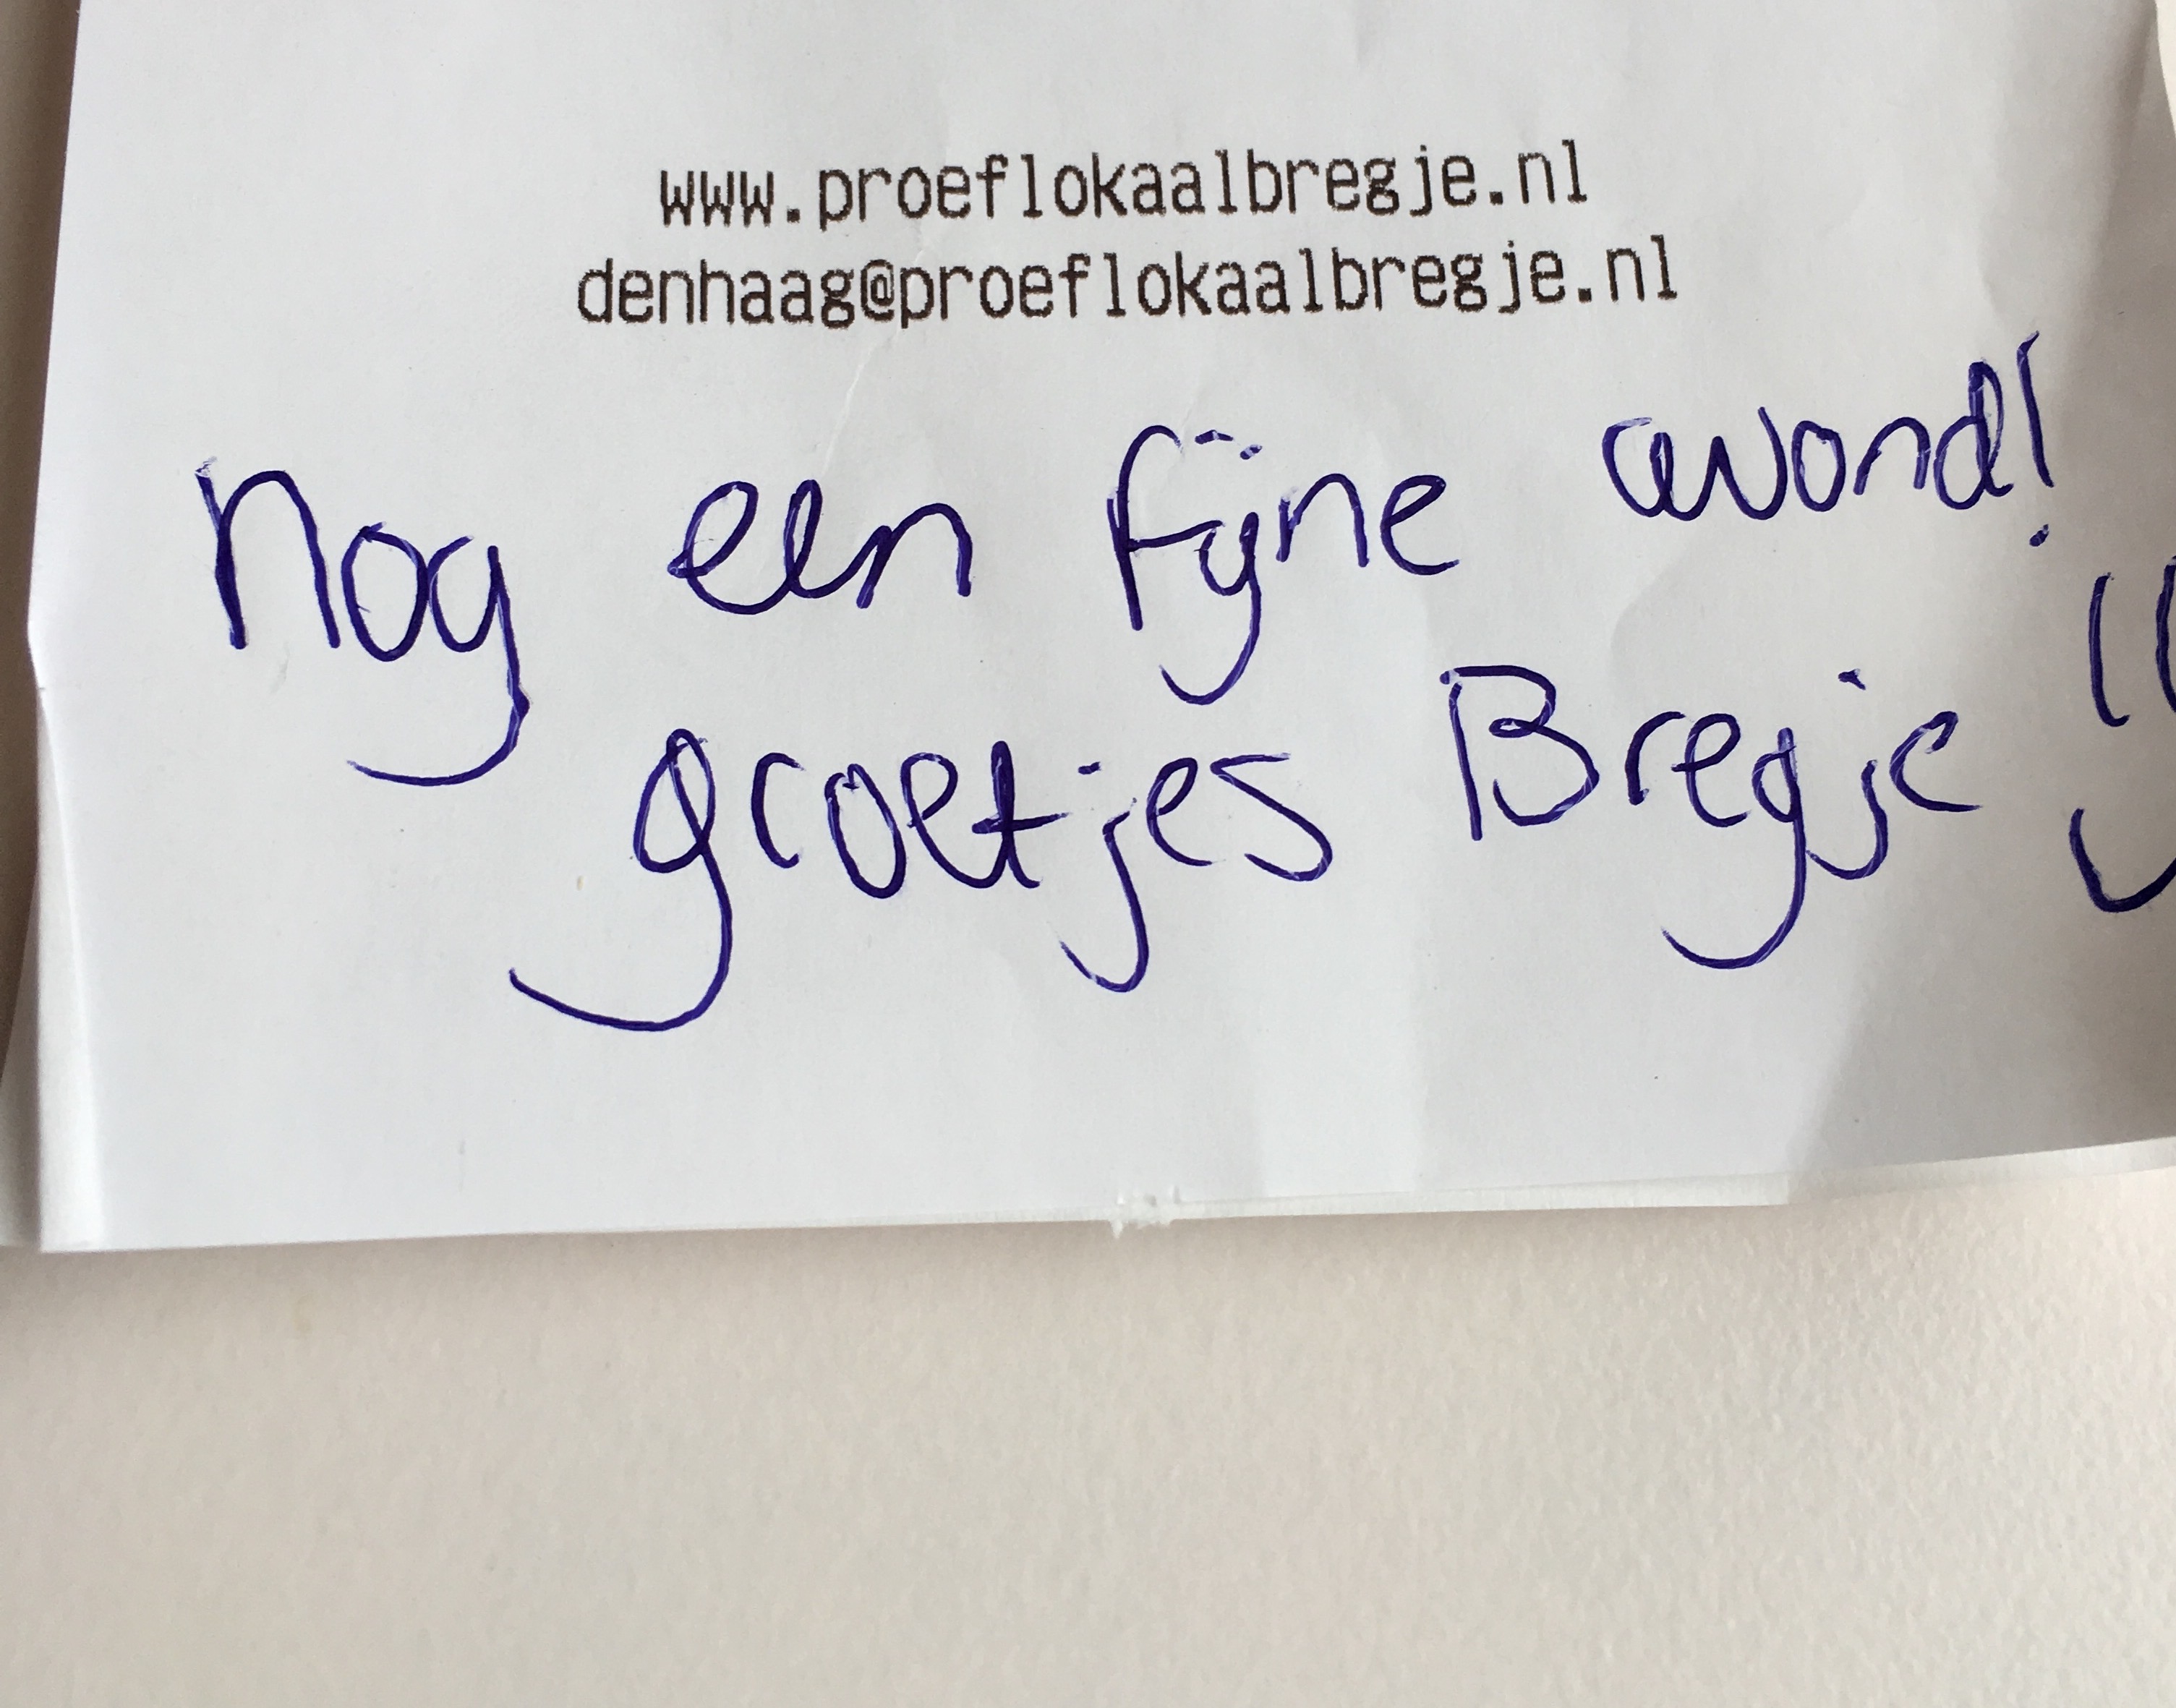 www.proeflokaalbregje.nl
denhaag@proeflokaalbregje.nl
nog een fijne avond!
groetjes Bregje